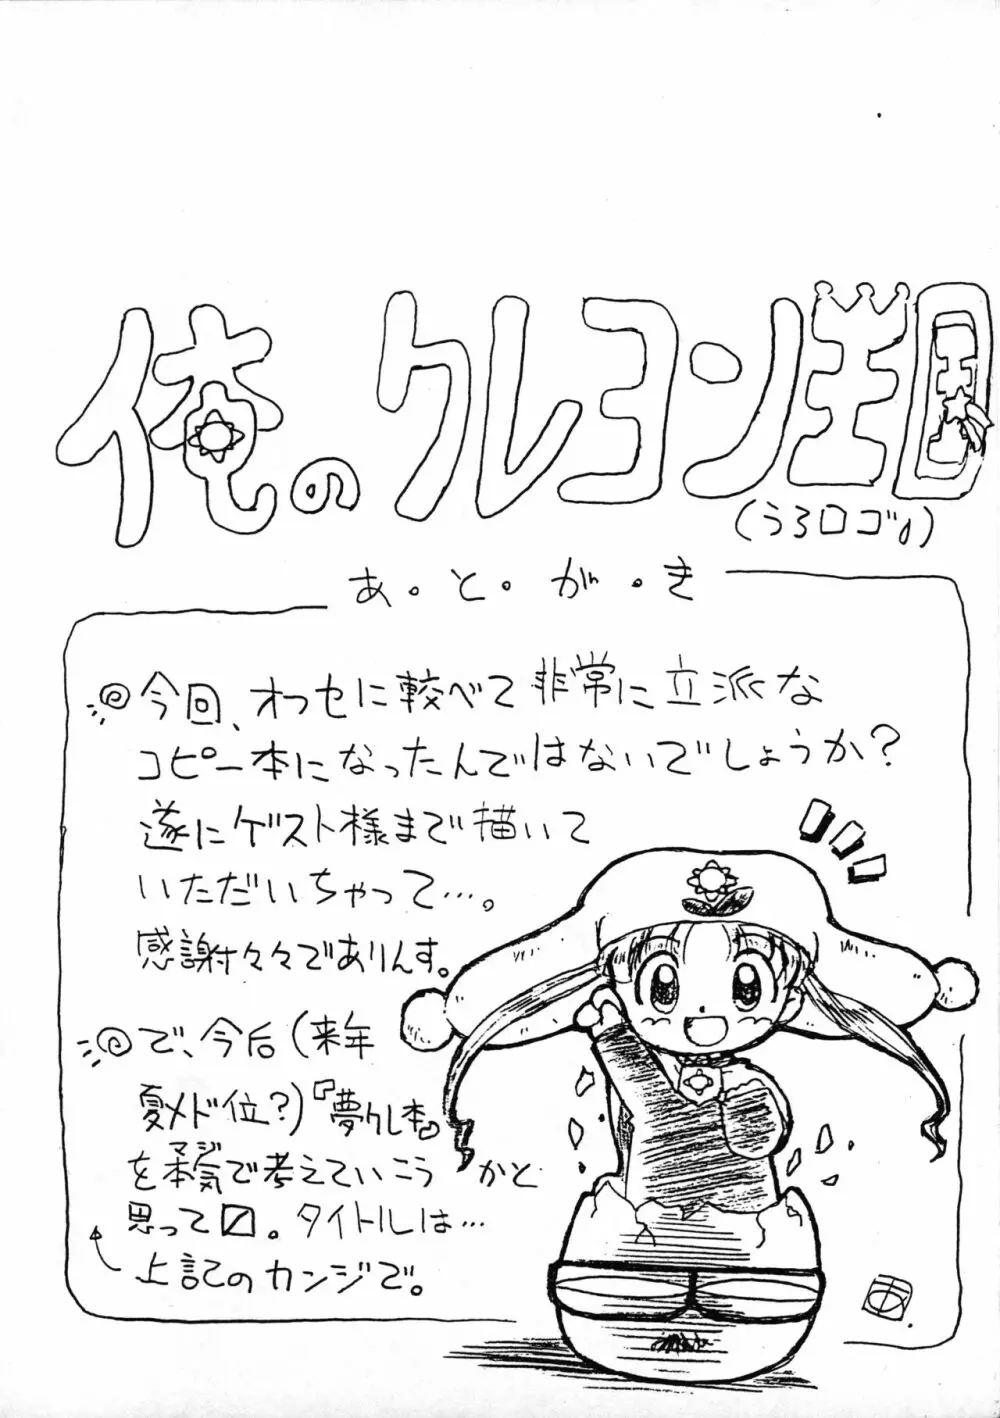 俺のクレヨン王国
(うろロゴ)
あ・と・が・き
今回、オフセに較べて非常に立派な
コピー本になったんではないでしょうか?
遂にゲスト様まで描いて
いただいちゃって…。
感謝々々でありんす。
で、今后(来年
夏メド位?)『夢クレ本』
を本気で考えていこうかと
マジ
思って〼。タイトルは…
上記のカンジで。